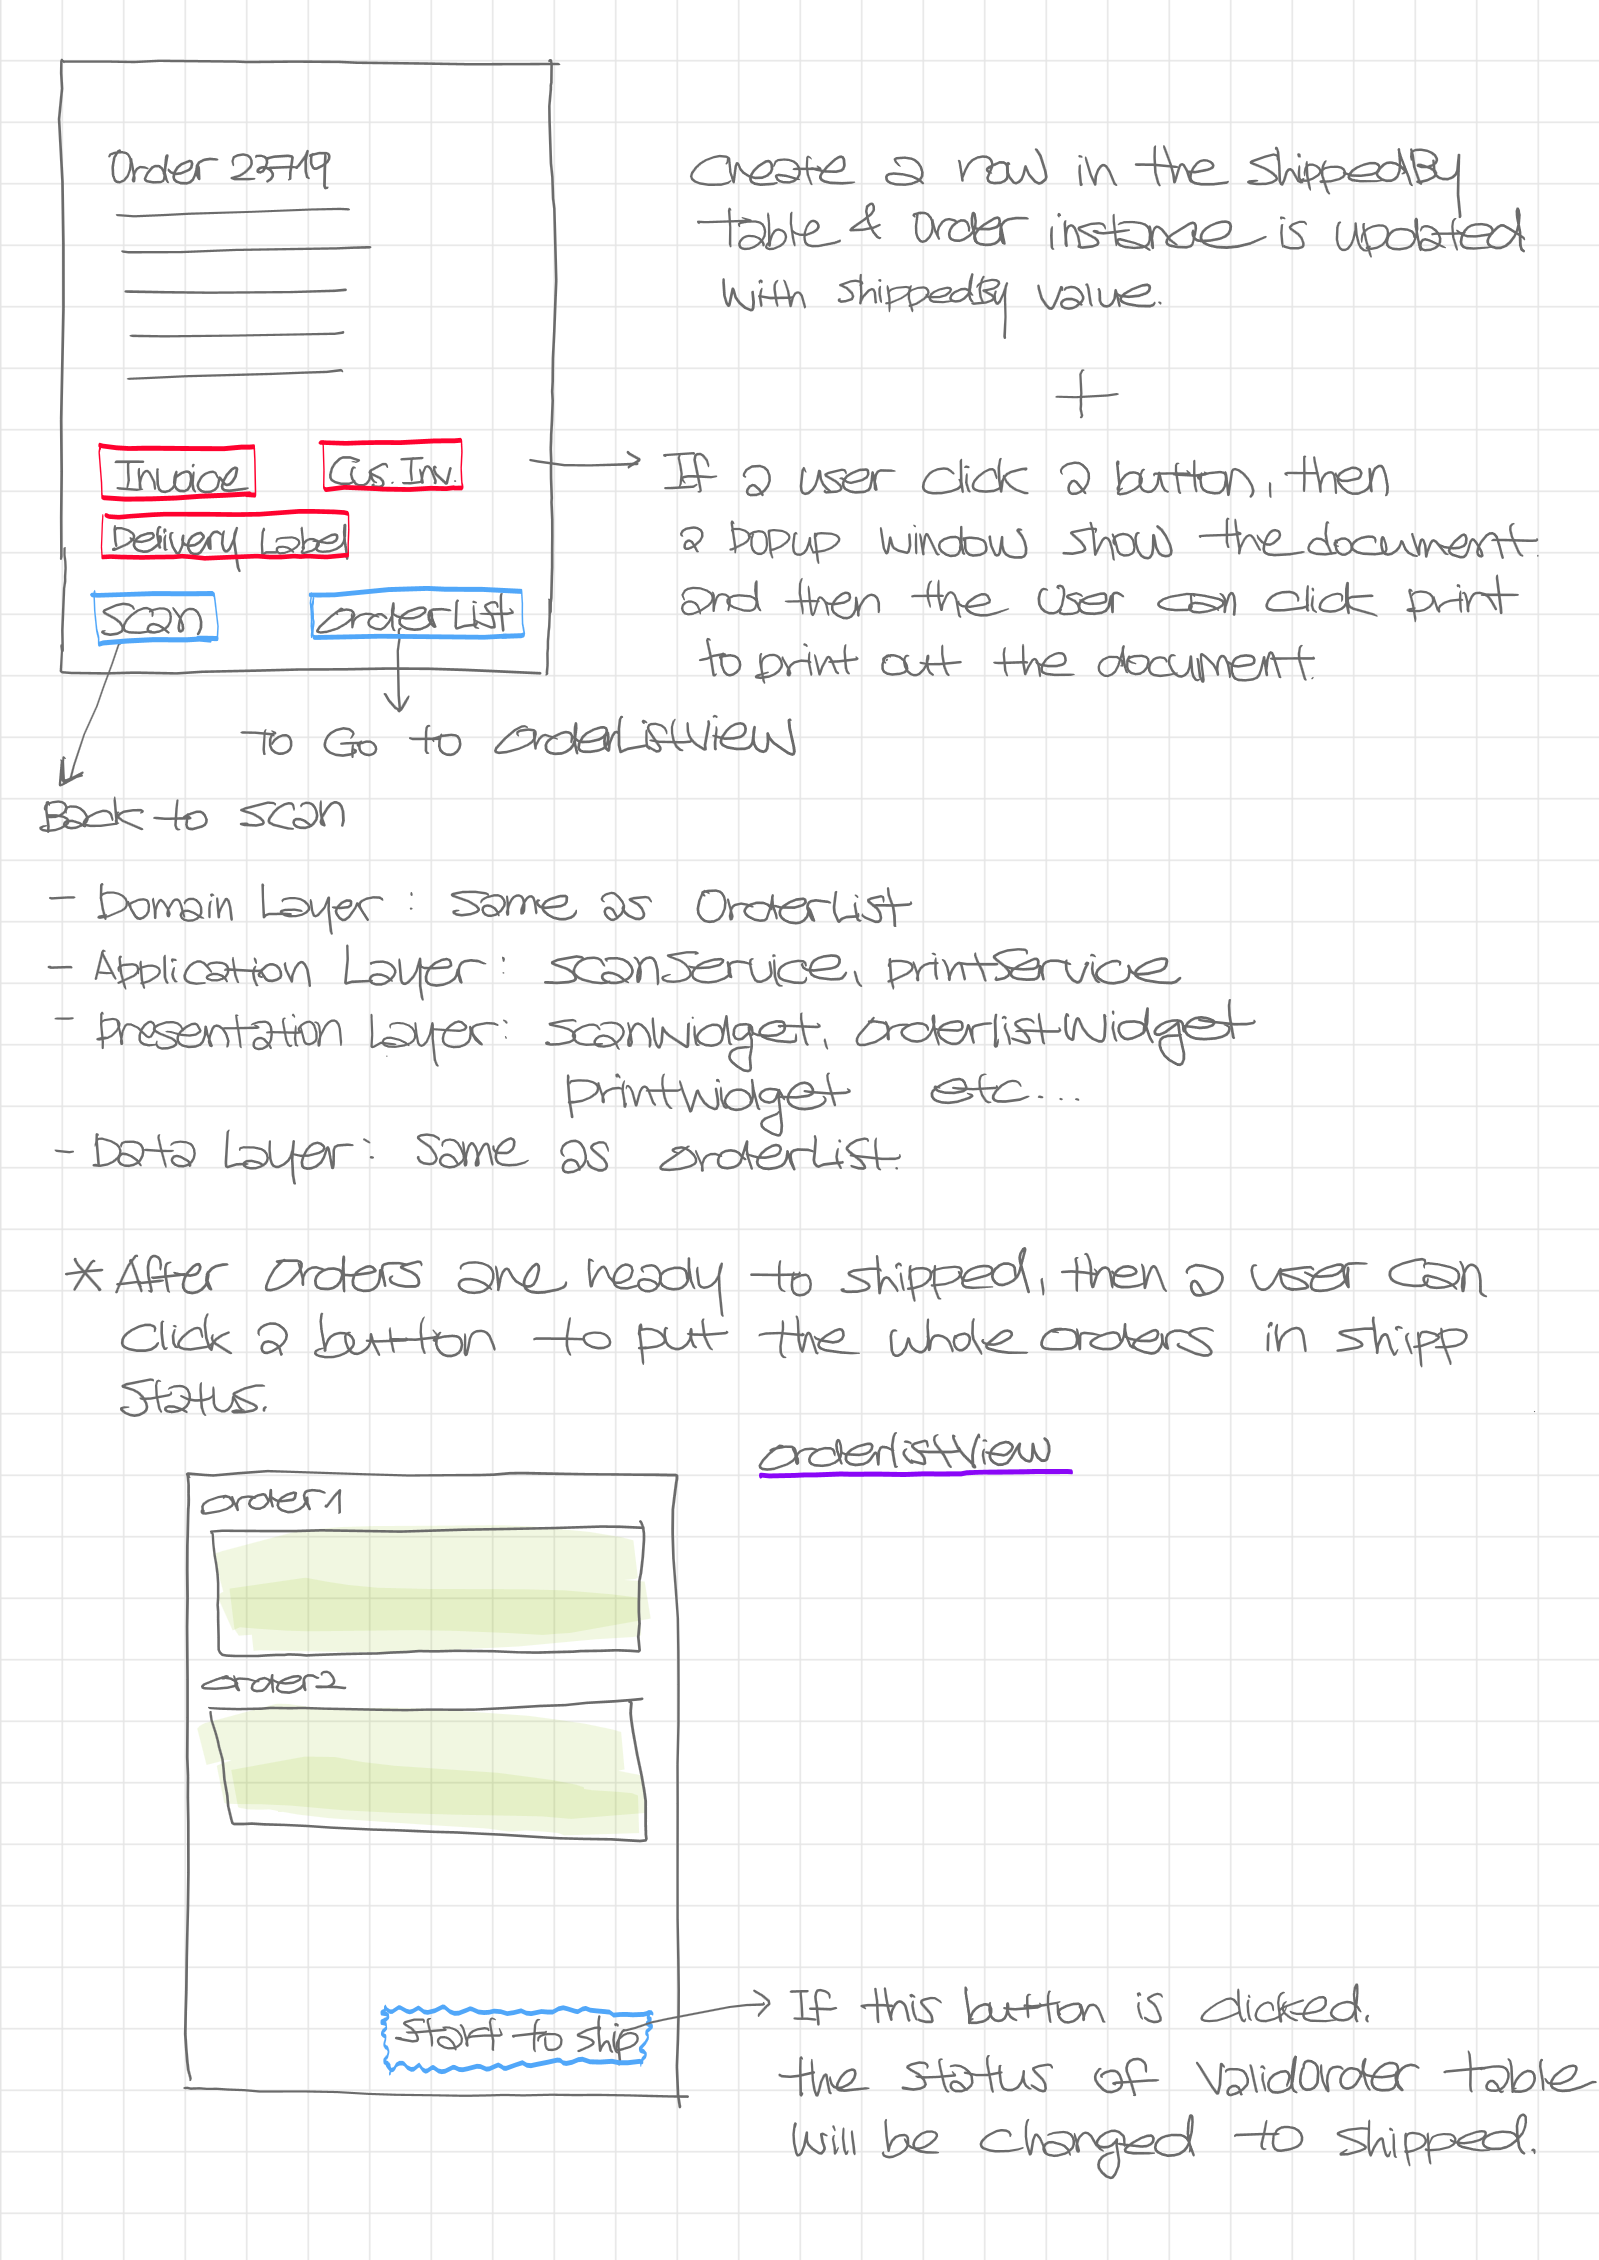 Order 23719
Create a row in the shippedBy
table & Order instance is updated
with shippedBy value.
+
Invoice
Cus. Inv.
Delivery Label
Scan
OrderList
If a user click a button, then
a popup window show the document
and then the user can click print
to print out the document.
To Go to OrderListView
Back to scan
- Domain Layer : same as OrderList
- Application Layer : scanService, printService
- Presentation Layer : scanWidget, orderlistWidget
printWidget etc....
- Data Layer : same as orderList.
* After orders are ready to shipped, then a user can
click a button to put the whole orders in shipp
status.
orderlistView
order1
order2
start to ship
If this button is clicked.
the status of ValidOrder table
will be changed to shipped.